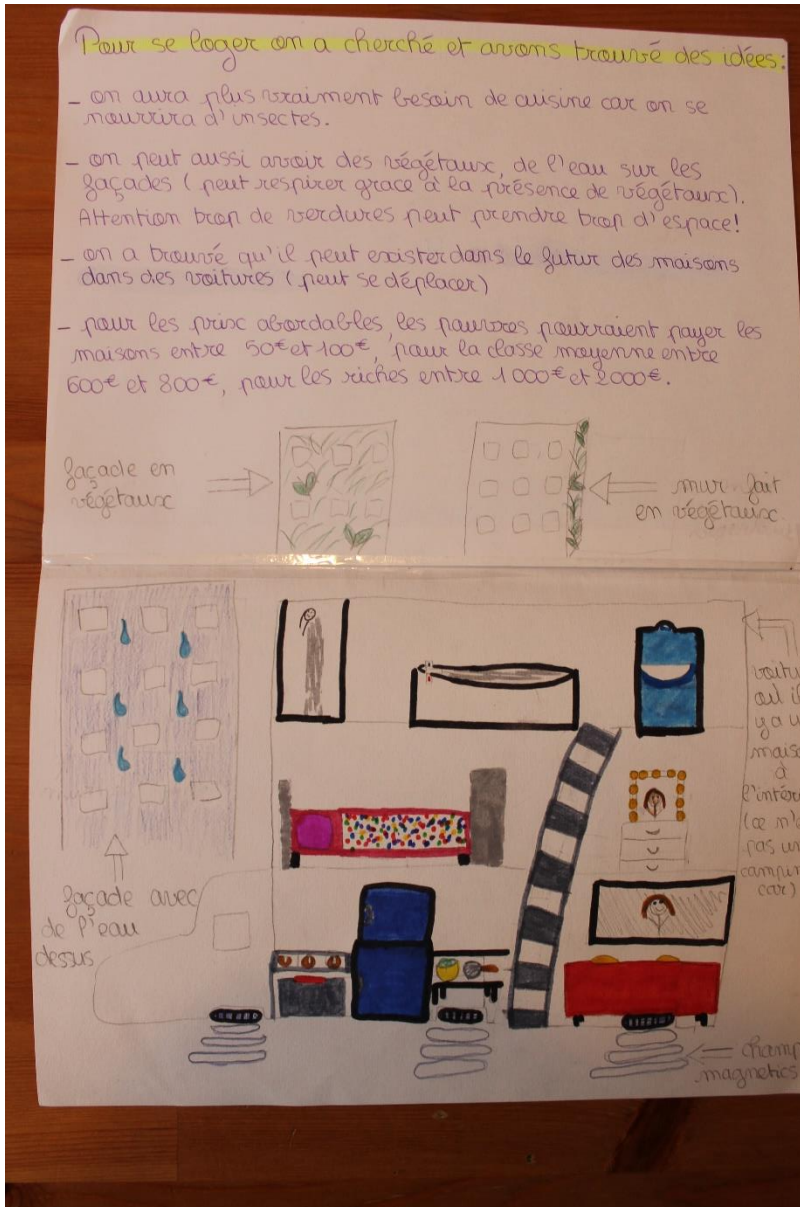 Pour se loger on a cherché et avons trouvé des idées:
- on aura plus vraiment besoin de cuisine car on se
nourrira d'insectes.
- on peut aussi avoir des végétaux, de l'eau sur les
façades ( peut respirer grace à la présence de végétaux).
Attention trop de verdures peut prendre trop d'espace!
- on a trouvé qu'il peut exister dans le futur des maisons
dans des voitures ( peut se déplacer)
- pour les prix abordables, les pauvres pourraient payer les
maisons entre 50€ et 100€, pour la classe moyenne entre
600€ et 800€, pour les riches entre 1000€ et 2000€.
façade en
végétaux
mur fait
en végétaux
façade avec
de l'eau
dessus
voitu
où il
y a u
maiso
à
l'intér
(ce n'
pas un
campin
car)
champ
magnetics